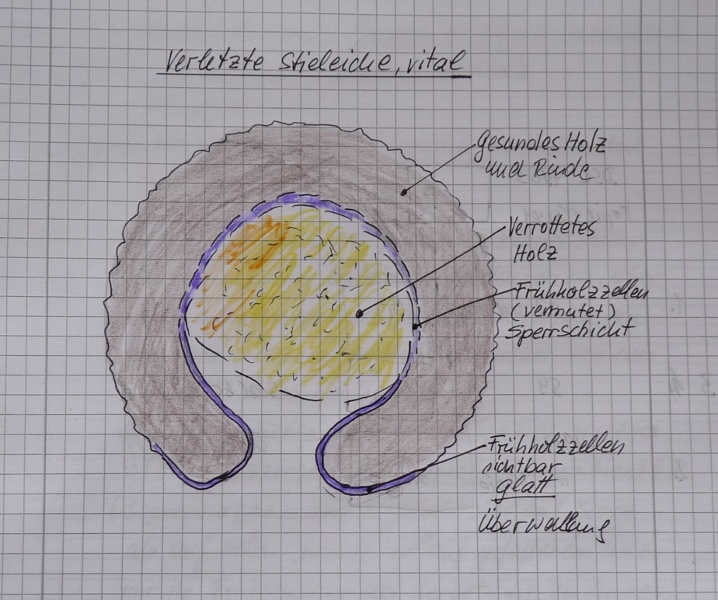 Verletzte Stieleiche, vital
Gesundes Holz
und Rinde
Verrottetes
Holz
Frühholzzellen
(vermutet)
Sperrschicht
Frühholzzellen
sichtbar
glatt
Überwallung